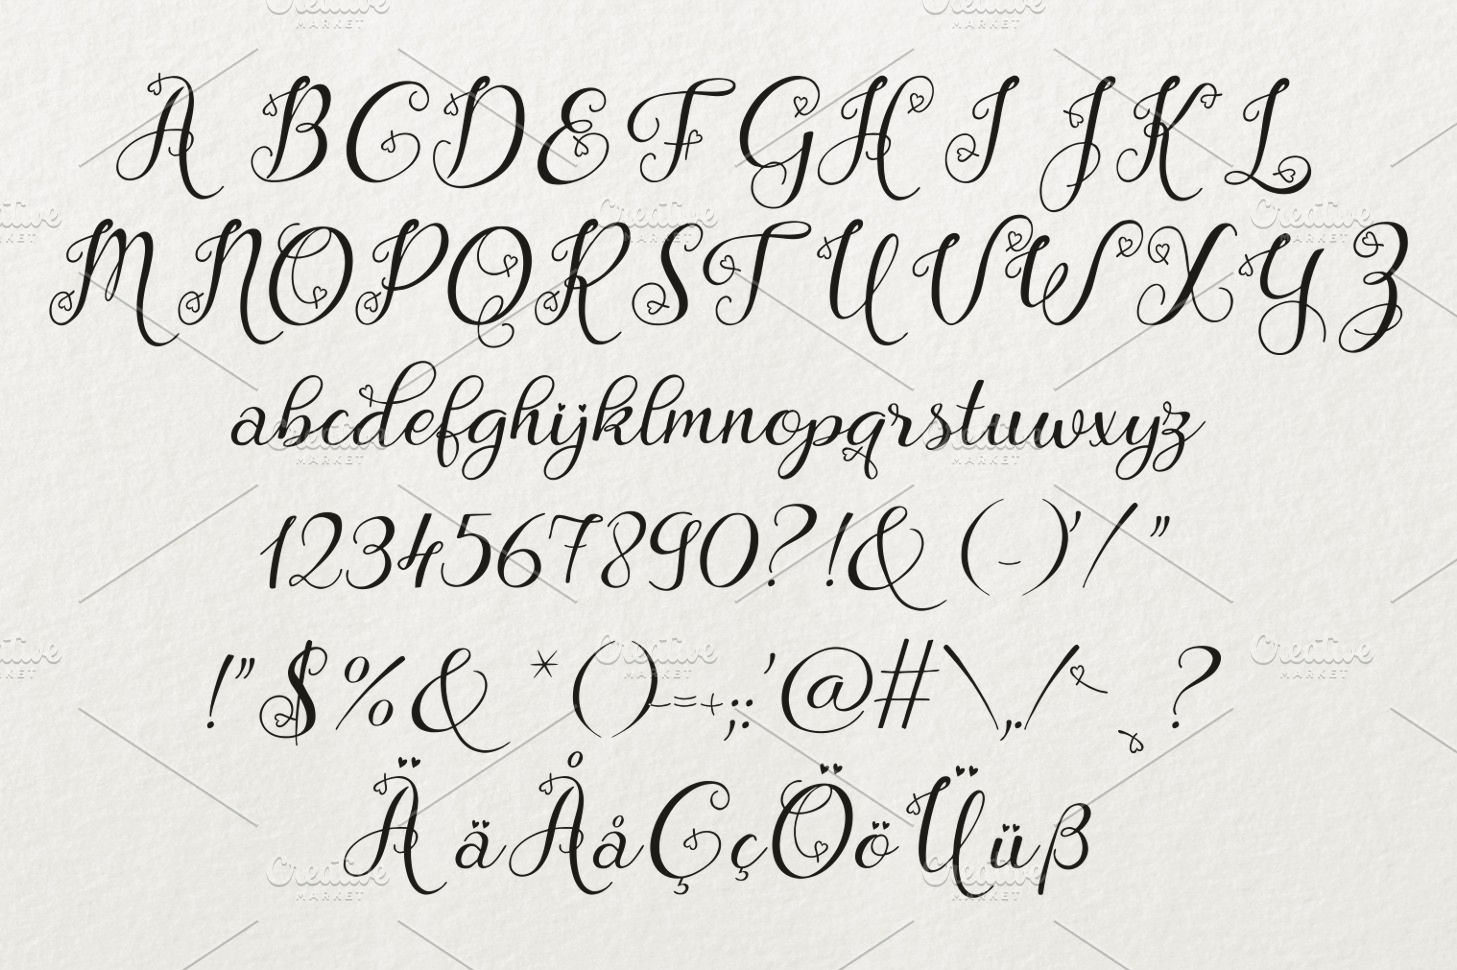 A B C D E F G H I J K L
M N O P Q R S T U V W X Y Z
abcdefghijklmnopqrstuvwxyz
1234567890?!& (-)'/ "
!"$%&*()-=+;:'@#\,./^~?
ÄäÅåÇçÖöÜüß
Creative Market